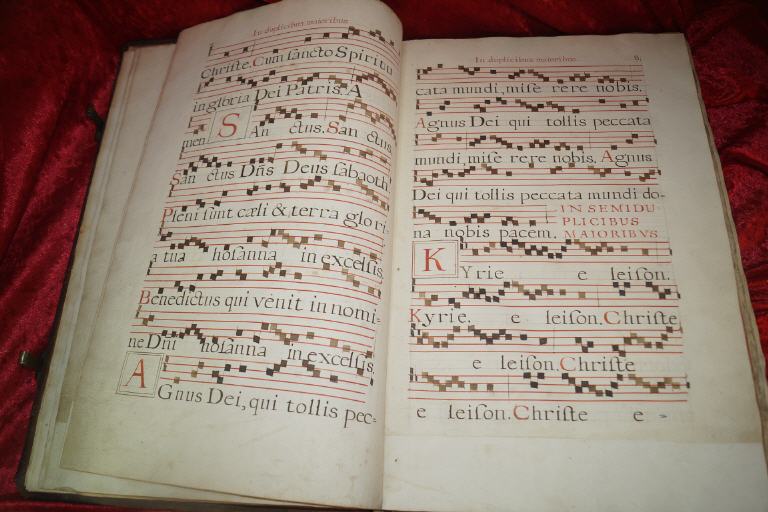 In duplicibus maioribus
Chriſte. Cum ſancto Spiritu
in gloria Dei Patris. A
men. SAn ctus. San ctus
San ctus Dñs Deus ſabaoth
Pleni ſunt cæli & terra glo ri-
a tua hoſanna in excelſis.
Benedictus qui venit in nomi=
ne Dñi hoſanna in excelſis.
AGnus Dei, qui tollis pec=
In duplicibus maioribus.
cata mundi, miſe re re nobis.
Agnus Dei qui tollis peccata
mundi, miſe re re nobis. Agnus
Dei qui tollis peccata mundi do-
na nobis pacem. IN SEMIDU
PLICIBUS
MAIORIBVS
KYrie e leiſon.
Kyrie. e leiſon. Chriſte
e leiſon. Chriſte
e leiſon. Chriſte e =